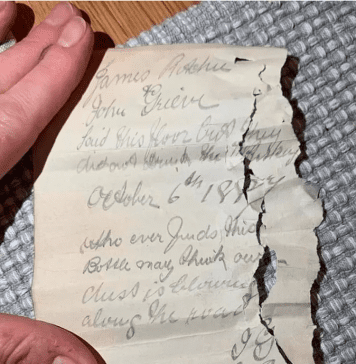 James Ritchie
John Grieve
laid this floor but they
did not drink the whisky
October 6th 1887
who ever finds this
Bottle may think our
dust is blowing
along the road
J G